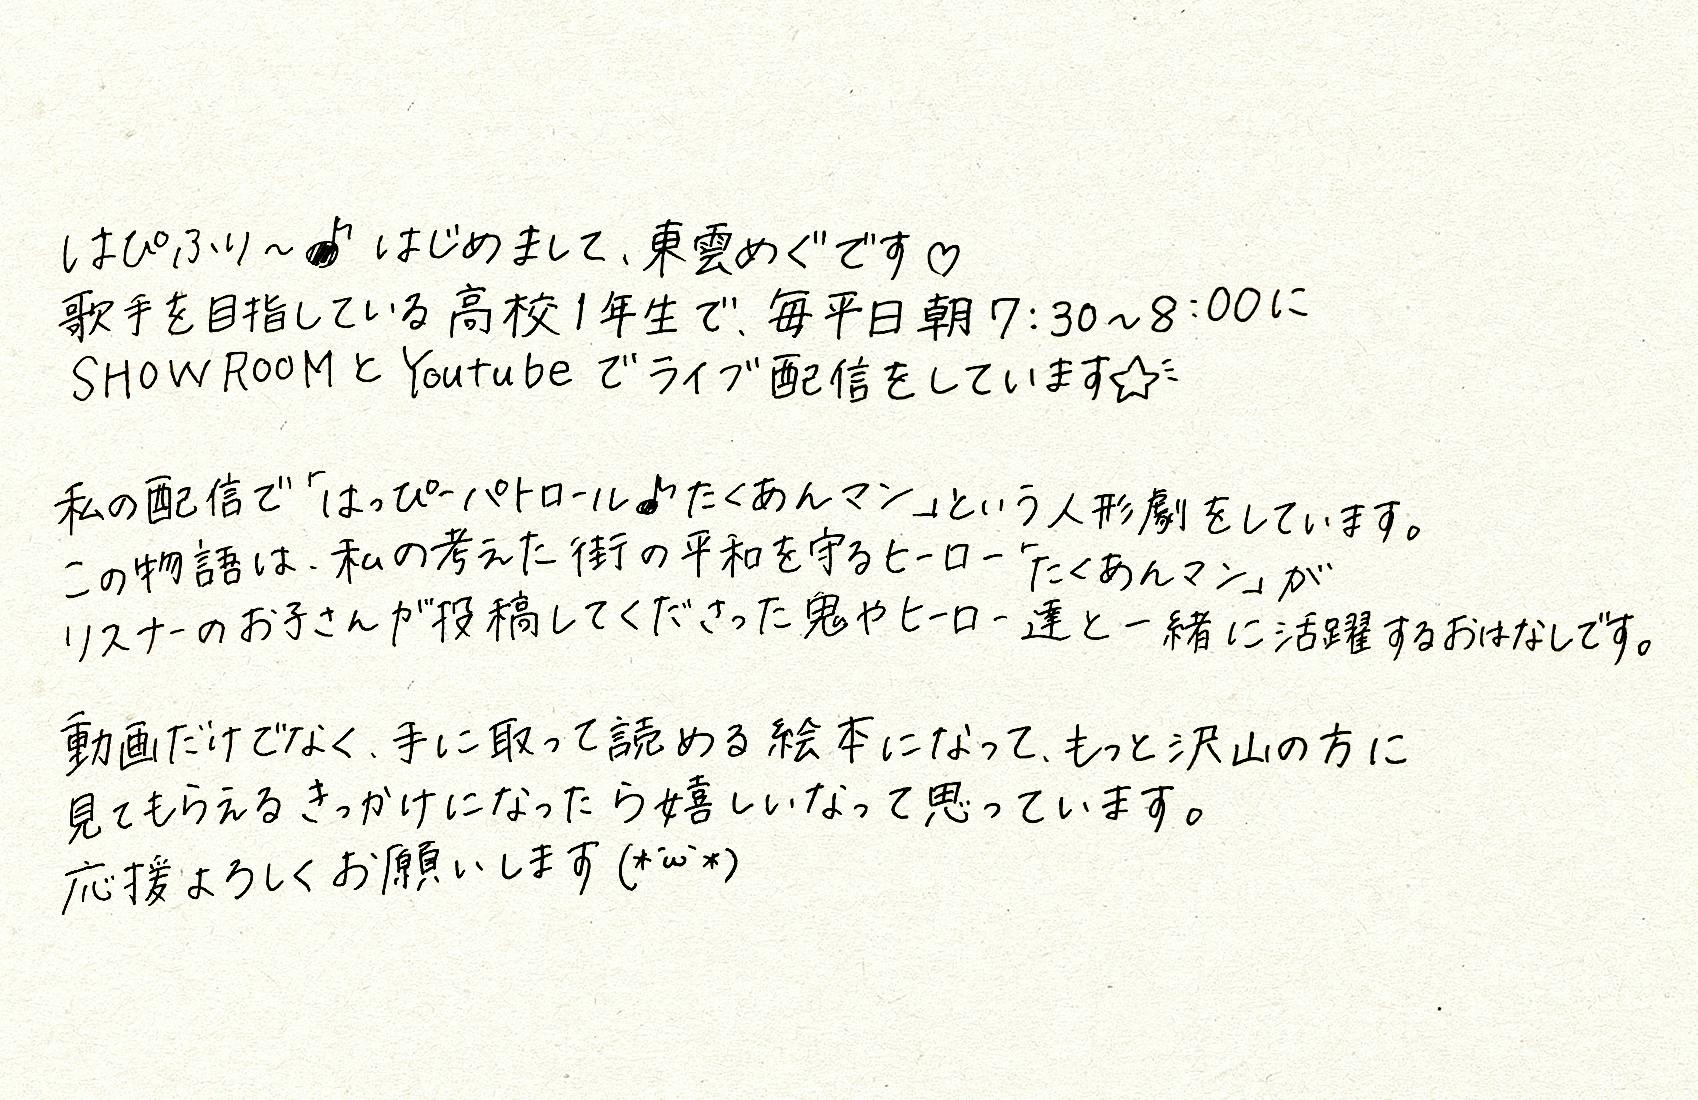 はぴふり～♪ はじめまして、東雲めぐです♡
歌手を目指している高校1年生で、毎平日朝7:30～8:00に
SHOWROOMとYoutubeでライブ配信をしています☆ミ
私の配信で「はっぴーパトロール♪たくあんマン」という人形劇をしています。
この物語は、私の考えた街の平和を守るヒーロー「たくあんマン」が
リスナーのお子さんが投稿してくださった鬼やヒーロー達と一緒に活躍するおはなしです。
動画だけでなく、手に取って読める絵本になって、もっと沢山の方に
見てもらえるきっかけになったら嬉しいなって思っています。
応援よろしくお願いします(*´ω`*)